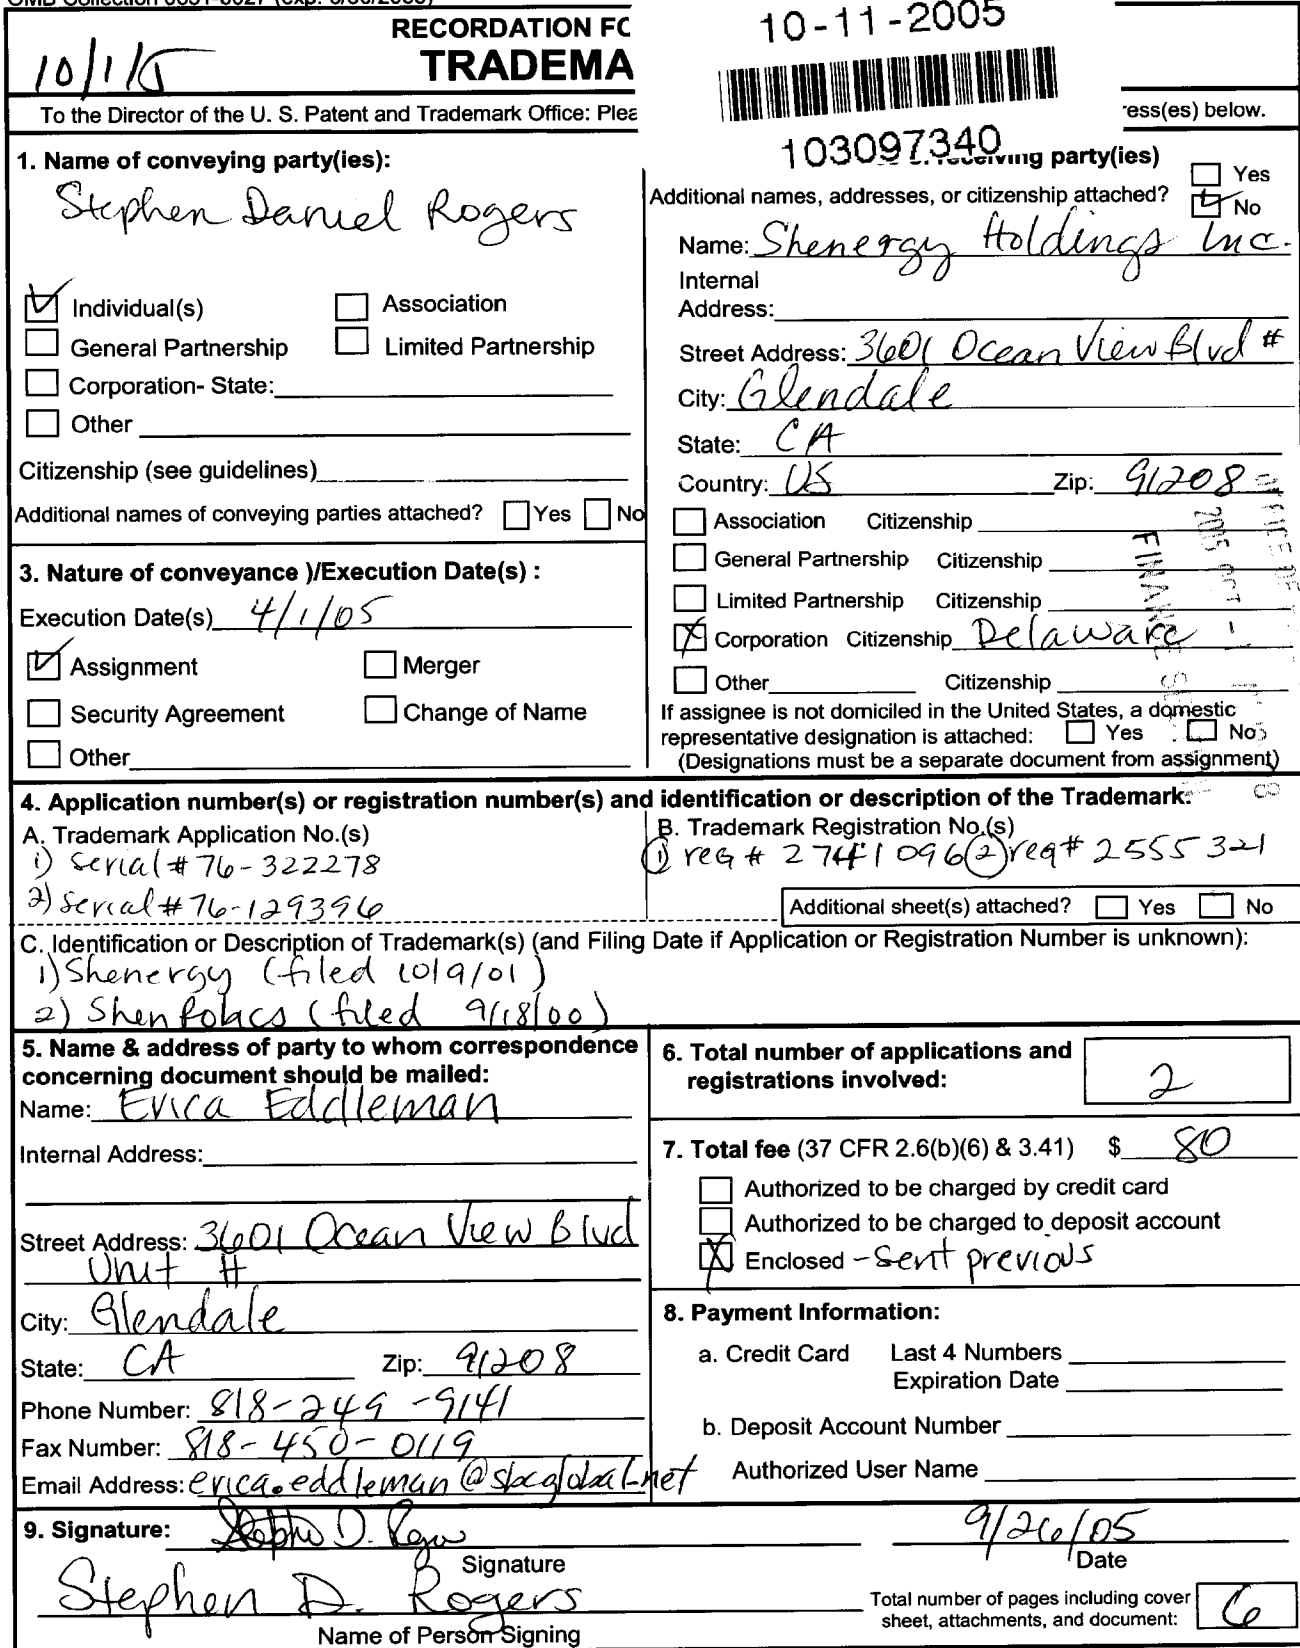 RECORDATION FO
TRADEMA
10/1/5
10-11-2005
103097340
To the Director of the U. S. Patent and Trademark Office: Plea
ress(es) below.
1. Name of conveying party(ies):
Stephen Daniel Rogers
Individual(s) Association
General Partnership Limited Partnership
Corporation- State:
Other
Citizenship (see guidelines)
Additional names of conveying parties attached? Yes No
receiving party(ies)
Additional names, addresses, or citizenship attached? Yes No
Name: Shenergy Holdings Inc.
Internal
Address:
Street Address: 3601 Ocean View Blvd #
City: Glendale
State: CA
Country: US Zip: 91208
Association Citizenship
General Partnership Citizenship
Limited Partnership Citizenship
Corporation Citizenship Delaware
Other Citizenship
If assignee is not domiciled in the United States, a domestic
representative designation is attached: Yes No
(Designations must be a separate document from assignment)
3. Nature of conveyance )/Execution Date(s) :
Execution Date(s) 4/1/05
Assignment Merger
Security Agreement Change of Name
Other
4. Application number(s) or registration number(s) and identification or description of the Trademark:
A. Trademark Application No.(s)
1) Serial # 76-322278
2) Serial # 76-129396
B. Trademark Registration No.(s)
1) reg # 2741096 2) reg # 2555321
Additional sheet(s) attached? Yes No
C. Identification or Description of Trademark(s) (and Filing Date if Application or Registration Number is unknown):
1) Shenergy (filed 10/9/01)
2) (filed 9/18/00)
5. Name & address of party to whom correspondence
concerning document should be mailed:
Name: Erica Eddleman
Internal Address:
Street Address: 3601 Ocean View Blvd
Unit #
City: Glendale
State: CA Zip: 91208
Phone Number: 818-249-9141
Fax Number: 818-450-0119
Email Address: erica.eddleman@sbcglobal.net
6. Total number of applications and
registrations involved: 2
7. Total fee (37 CFR 2.6(b)(6) & 3.41) $ 80
Authorized to be charged by credit card
Authorized to be charged to deposit account
Enclosed - Sent previous
8. Payment Information:
a. Credit Card Last 4 Numbers
Expiration Date
b. Deposit Account Number
Authorized User Name
9. Signature: Stephen D. Rogers 9/26/05
Signature Date
Stephen D. Rogers
Name of Person Signing
Total number of pages including cover
sheet, attachments, and document: 6